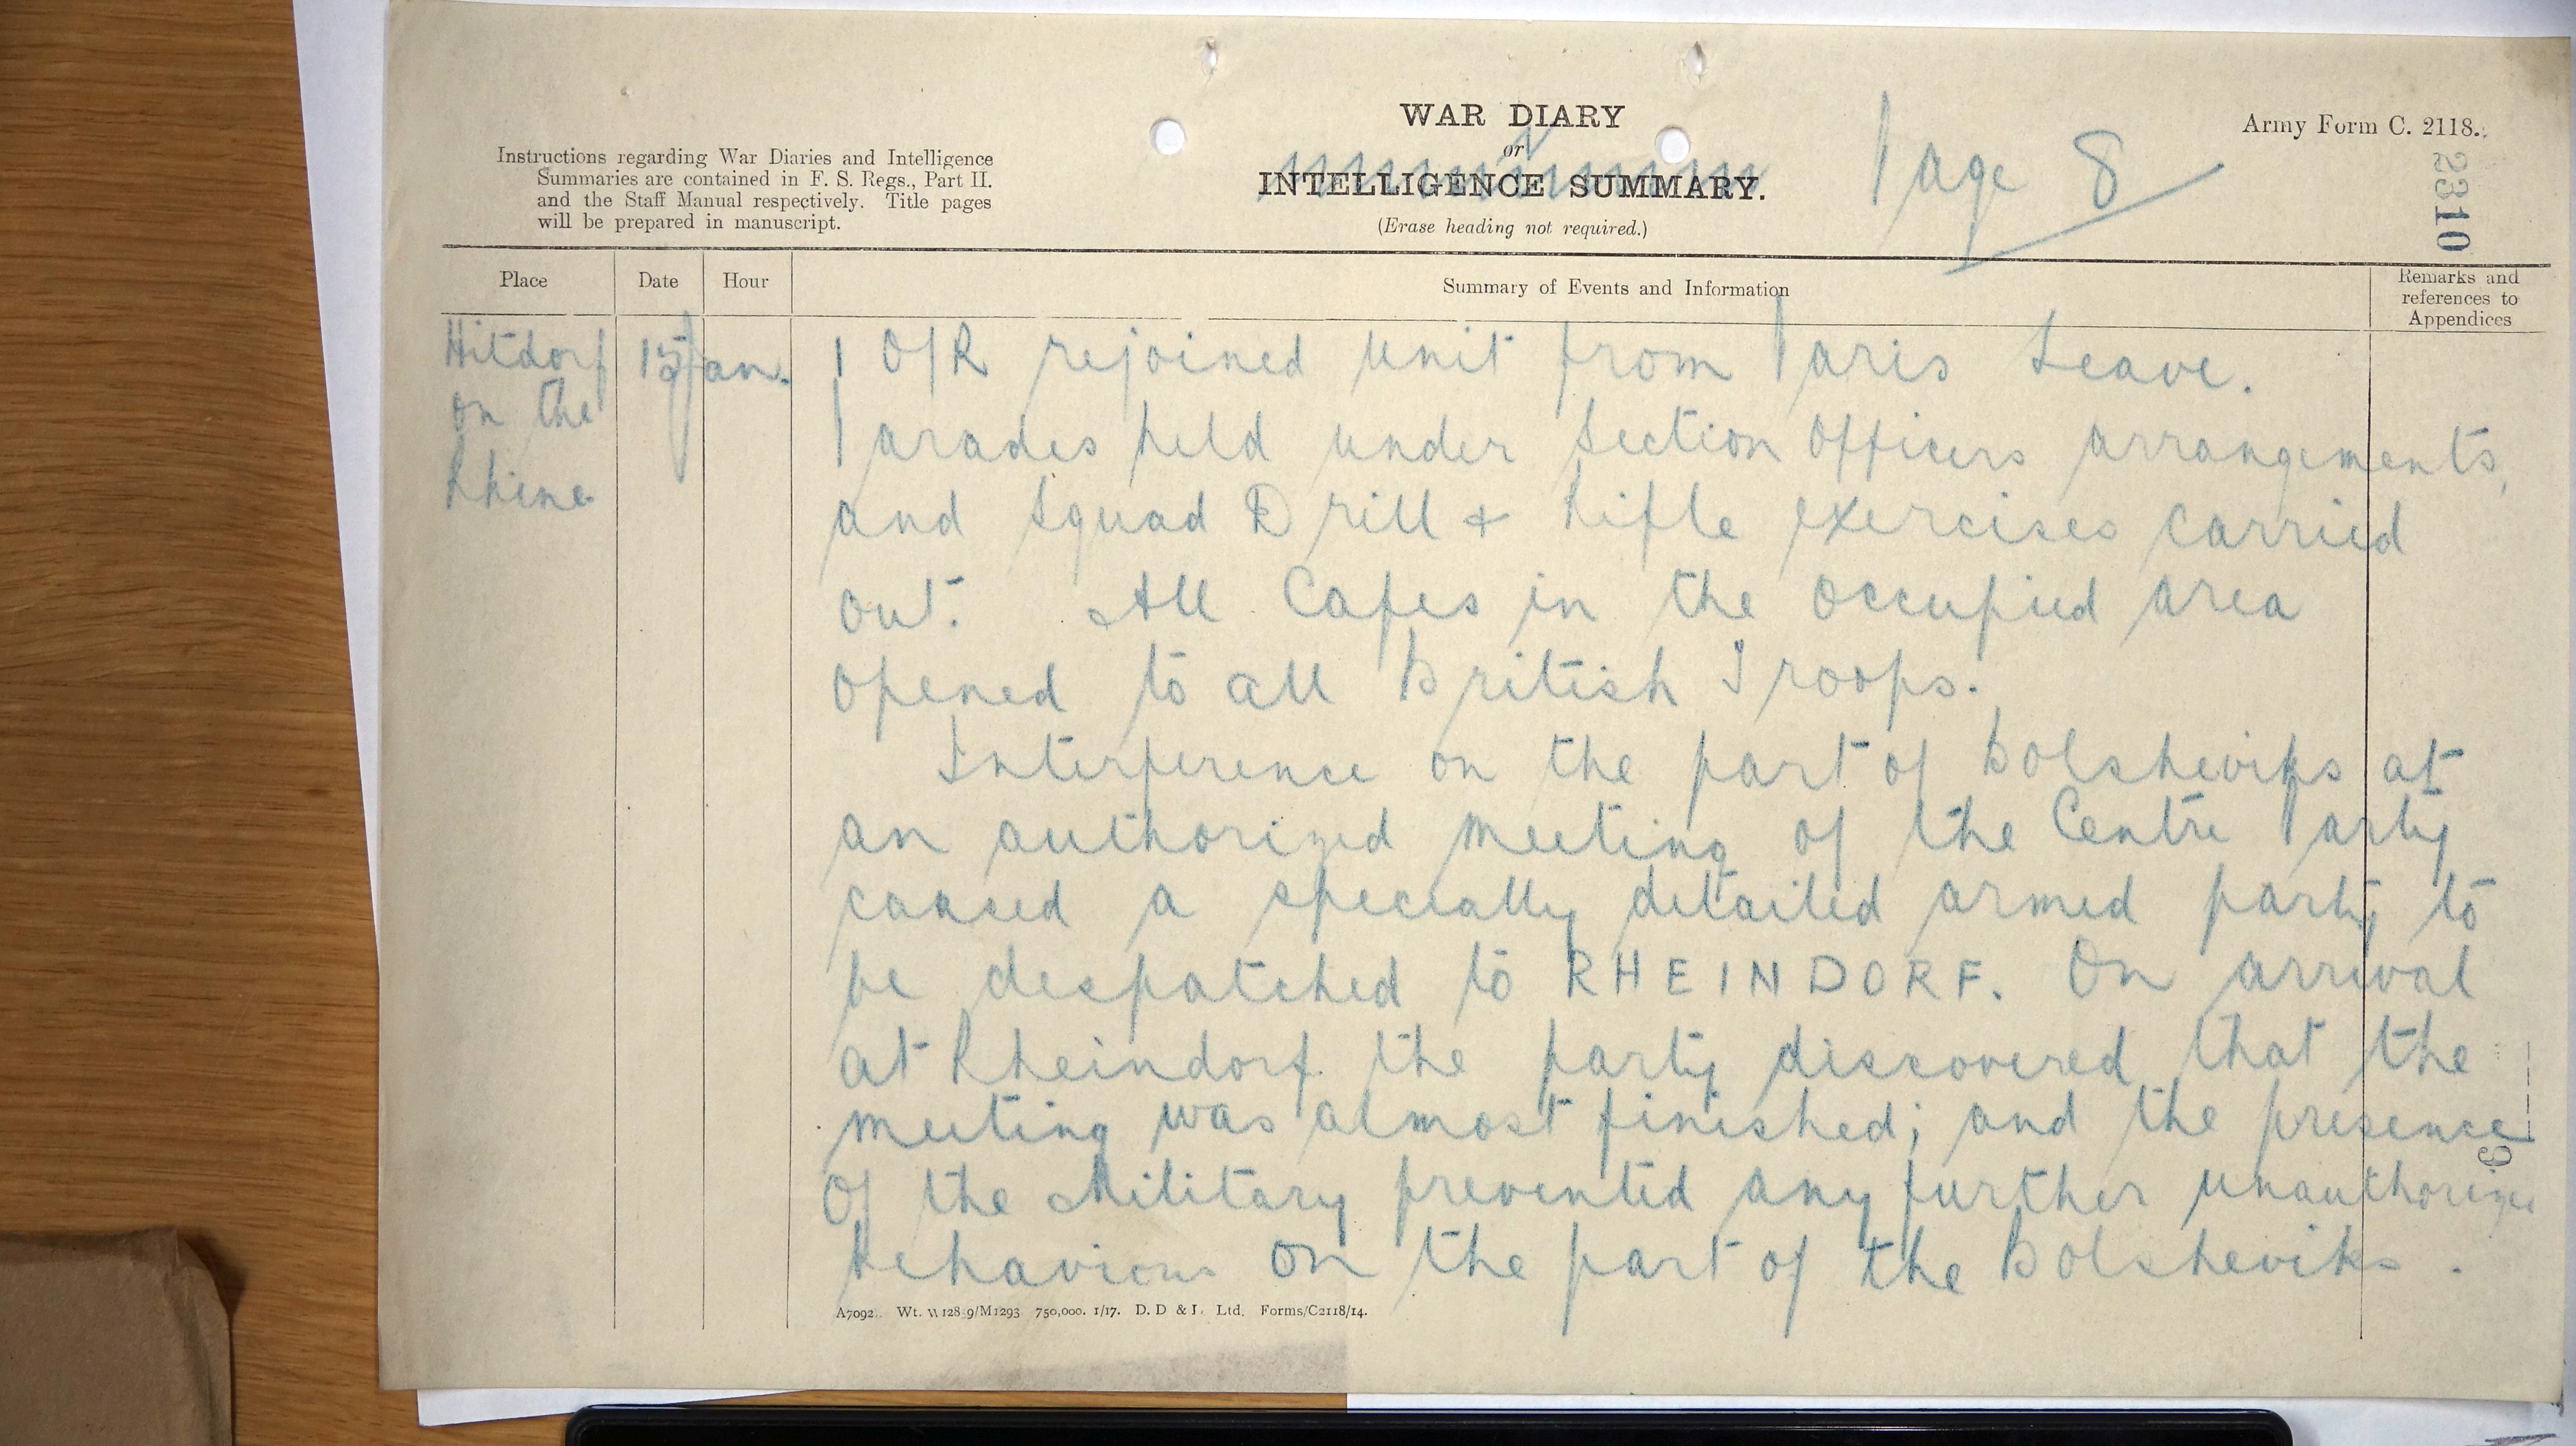 WAR DIARY
or
INTELLIGENCE SUMMARY.
(Erase heading not required.)
Instructions regarding War Diaries and Intelligence
Summaries are contained in F. S. Regs., Part II.
and the Staff Manual respectively. Title pages
will be prepared in manuscript.
Page 8
Army Form C. 2118.
2310
Place Date Hour Summary of Events and Information Remarks and references to Appendices
Hitdorf
on the
Rhine
15 Jan.
1 O/R rejoined unit from Paris Leave.
Parades held under Section Officers arrangements,
and Squad Drill + Rifle exercises carried
out. All Cafes in the occupied area
opened to all British Troops.
Interference on the part of Bolsheviks at
an authorized meeting of the Centre Party
caused a specially detailed armed party to
be despatched to RHEINDORF. On arrival
at Rheindorf the party discovered that the
meeting was almost finished; and the presence
of the Military prevented any further
behaviour on the part of the Bolsheviks.
Wt. 750,000. 1/17. Ltd. Forms/C2118/14.